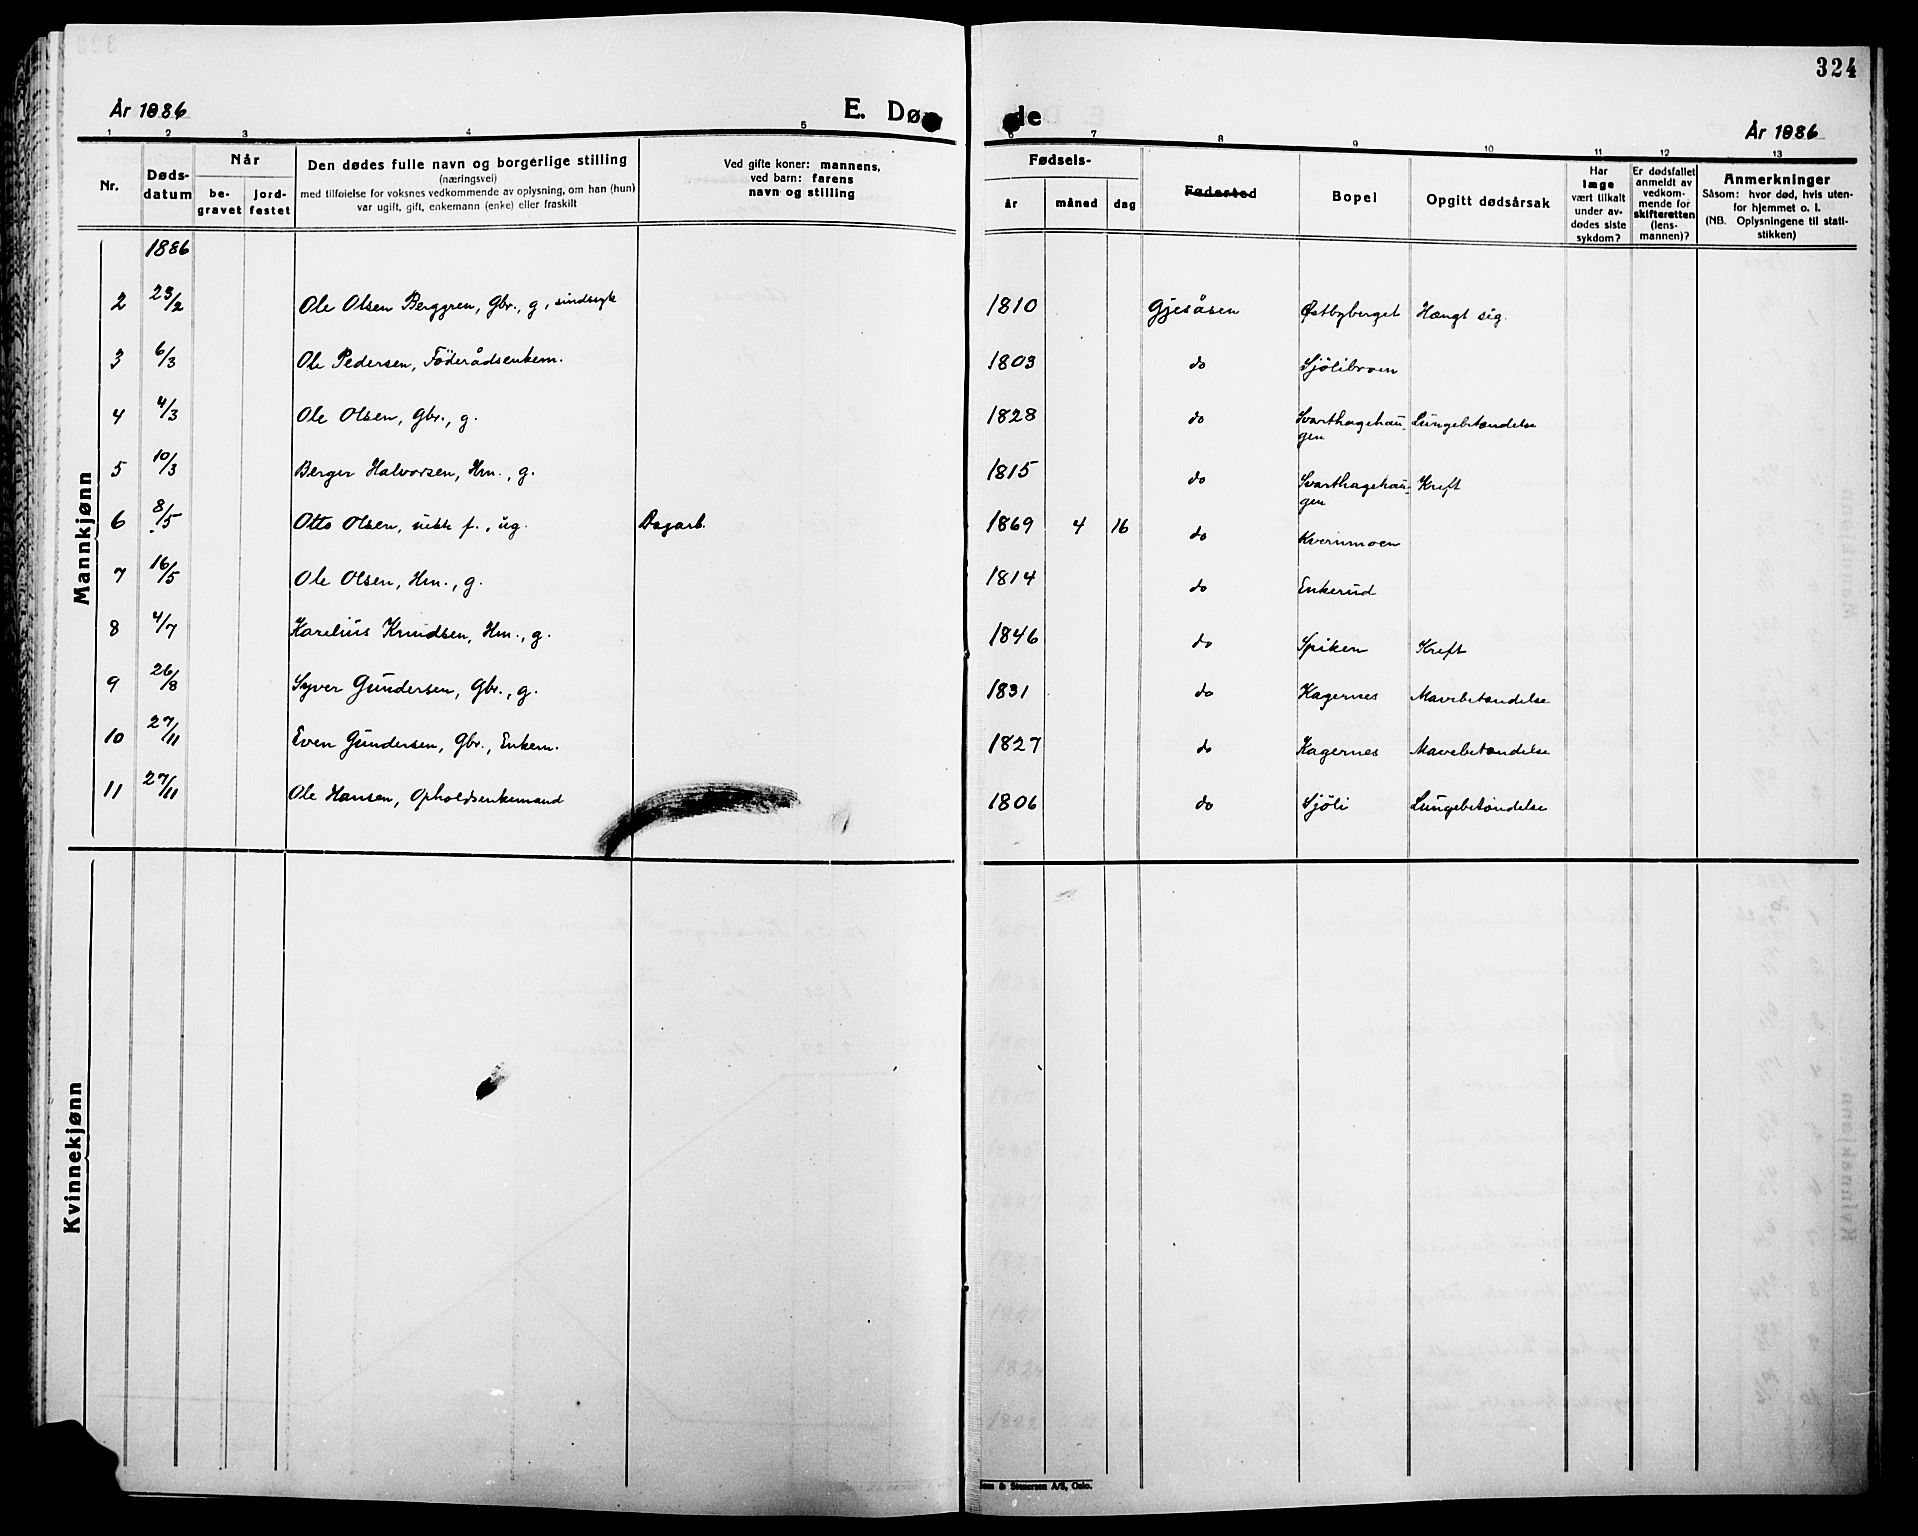 324
År 1886
E. Dø de
År 1886
1 2 3 4 5 6 7 8 9 10 11 12 13
Nr.
Døds-
datum
Når
be-
gravet
jord-
festet
Den dødes fulle navn og borgerlige stilling
(næringsvei)
med tilføielse for voksnes vedkommende av oplysning, om han (hun)
var ugift, gift, enkemann (enke) eller fraskilt
Ved gifte koner: mannens,
ved barn: farens
navn og stilling
Fødsels-
år måned dag
Fødested
Bopel
Opgitt dødsårsak
Har
læge
vært tilkalt
under av-
dødes siste
sykdom?
Er dødsfallet
anmeldt av
vedkom-
mende for
skifteretten
(lens-
mannen)?
Anmerkninger
Såsom: hvor død, hvis uten-
for hjemmet o. l.
(NB. Oplysningene til stati-
stikken)
Mannkjønn
1886
2 23/2 Ole Olsen Berggren, Gbr., g., sindssyk 1810 Gjesåsen Østbyberget Hængt sig.
3 6/3 Ole Pedersen, Föderådsenkem. 1803 do Sjölibroen
4 4/3 Ole Olsen, Gbr., g. 1828 do Svarthagehau- Lungebetændelse
gen
5 10/3 Berger Halvorsen, Hm., g. 1815 do Svarthagehau- Kreft
gen
6 8/5 Otto Olsen, ikke f., ug. Dagarb. 1869 4 16 do Kvernmoen
7 16/5 Ole Olsen, Hm., g. 1814 do Enkerud
8 4/7 Karelius Knudsen, Hm., g. 1846 do Spiken Kreft
9 26/8 Syver Gundersen, Gbr., g. 1831 do Kagernes Mavebetændelse
10 27/11 Even Gundersen, Gbr., Enkem. 1827 do Kagernes Mavebetændelse
11 27/11 Ole Hansen, Opholdsenkemand 1806 do Sjöli Lungebetændelse
Kvinnekjønn
& Stenersen A/S, Oslo.